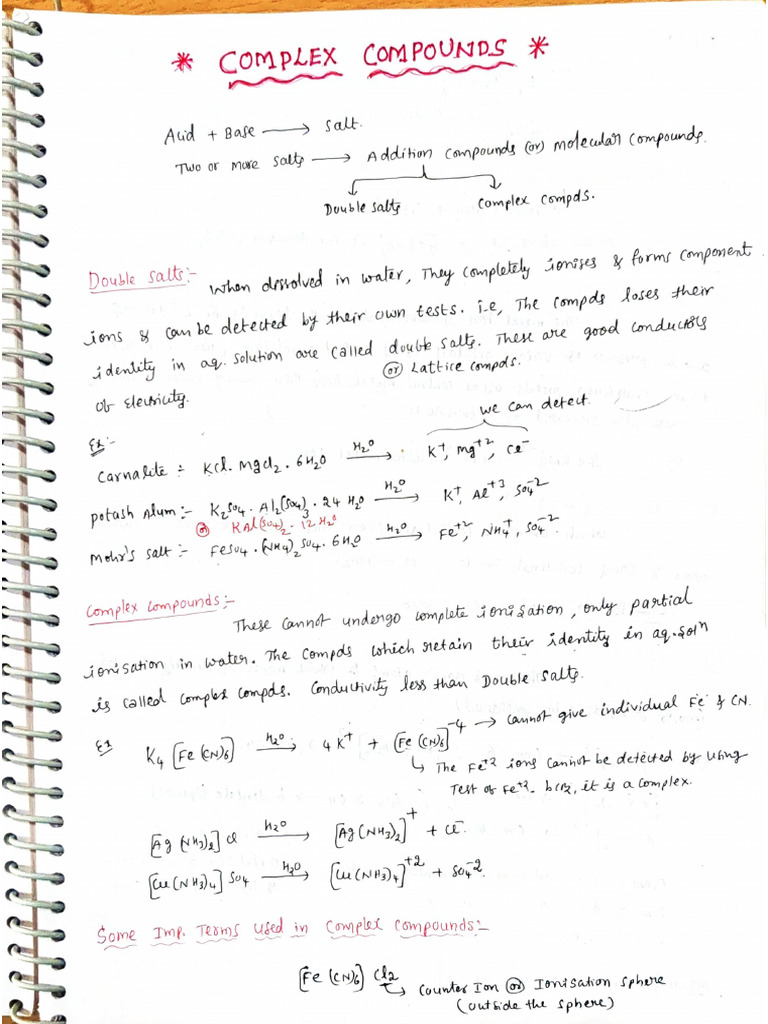 * COMPLEX COMPOUNDS *
Acid + Base ⟶ Salt.
Two or more salts ⟶ Addition Compounds (or) Molecular Compounds.
Double salts Complex compds.
Double Salts:- When dissolved in water, They completely ionises & forms component
ions & can be detected by their own tests. i.e, The compds loses their
identity in aq. solution are called double salts. These are good conductors
(or) Lattice compds.
of Electricity.
we can detect.
Ex:-
Carnalite :- KCl. MgCl2 . 6H2O —H2O→ K+, Mg+2, Cl-
potash Alum:- K2SO4 . Al2(SO4)3 . 24 H2O —H2O→ K+, Al+3, SO4-2
(or) KAl(SO4)2 . 12H2O
Mohr's salt :- FeSO4 . (NH4)2 SO4 . 6H2O —H2O→ Fe+2, NH4+, SO4-2
Complex compounds:-
These cannot undergo complete ionisation, only partial
ionisation in water. The compds which retain their identity in aq. soln
is called complex compds. Conductivity less than Double Salts.
Ex K4 [Fe(CN)6] —H2O→ 4K+ + [Fe(CN)6]-4 → cannot give individual Fe & CN.
↳ The Fe+2 ions cannot be detected by using
Test of Fe+2. bcoz, it is a complex.
[Ag(NH3)2] Cl —H2O→ [Ag(NH3)2]+ + Cl-.
[Cu(NH3)4] SO4 —H2O→ [Cu(NH3)4]+2 + SO4-2.
Some Imp. Terms Used in Complex Compounds:-
[Fe(CN)6] Cl2
↳ Counter Ion (or) Ionisation sphere
(outside the sphere)